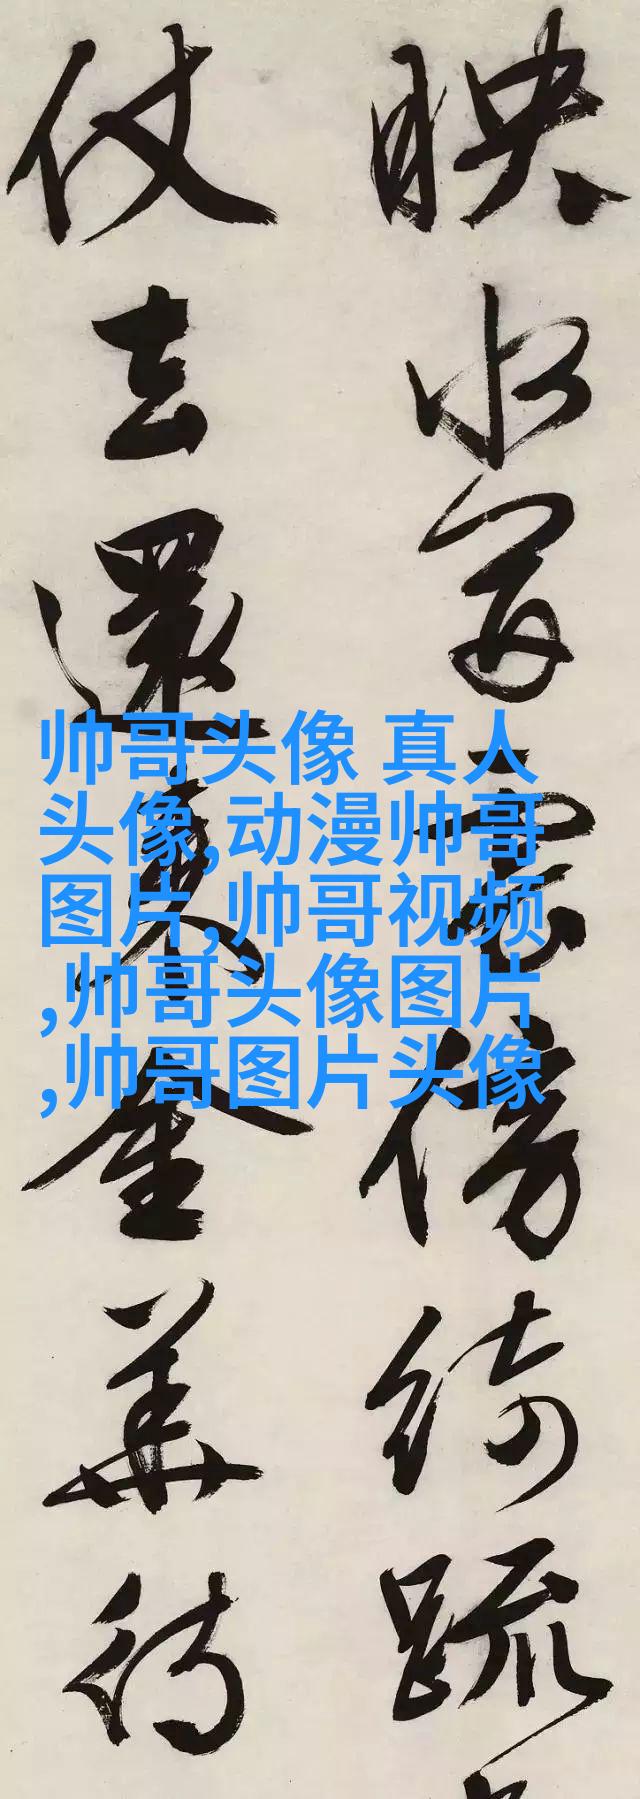 映水雲傍綺疏
仗去還金華侍
帅哥头像 真人
头像,动漫帅哥
图片,帅哥视频
,帅哥头像图片
,帅哥图片头像